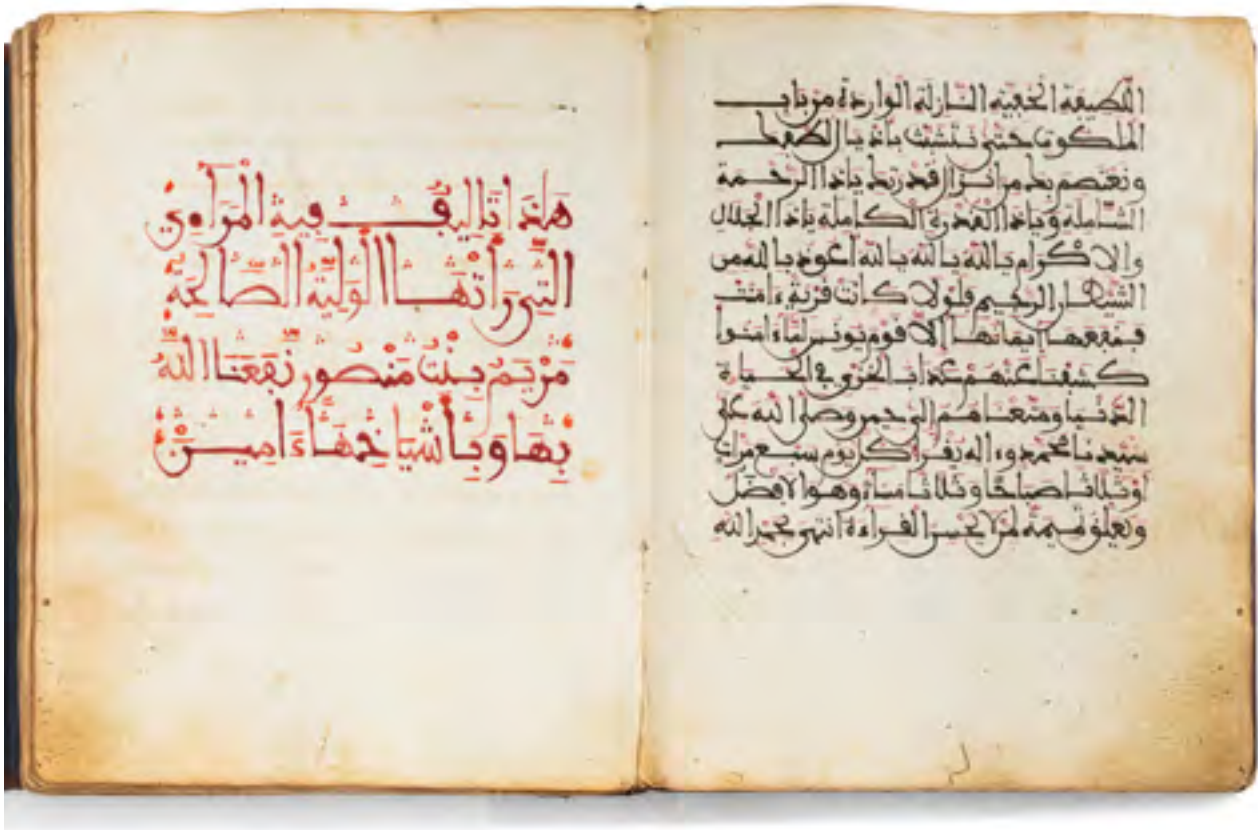 اللطيفة الخفية النازلة الواردة من باب
الملكوت حتى نتشبث باذيال لطفك
ونعتصم بك من انزال قدرتك ياذا الرحمة
الشاملة وياذا القدرة الكاملة ياذا الجلال
والاكرام يالله يالله يالله أعوذ بالله من
الشيطان الرجيم فلولا كانت قرية ءامنت
فنفعها ايمانها إلا قوم يونس لما ءامنوا
كشفنا عنهم عذاب الخزي في الحياة
الدنيا ومتعناهم الى حين وصلى الله على
سيدنا محمد وءاله يقرأ كل يوم سبع مرات
أو ثلاثا صباحا وثلاثا مساء وهو الافضل
وتعليق تميمة لمن لا يحسن القراءة انتهى بحمد الله
هَاذَا تَالِيف فِيهِ الْمَرَآءِي
التِي رَأَتْهَا الْوَلِيَّةُ الصَّالِحَةُ
مَرْيَمُ بِنْتُ مَنْصُورٍ نَفَعَنَا اللهُ
بِهَا وَبِأَشْيَاخِهَا ءَامِينْ